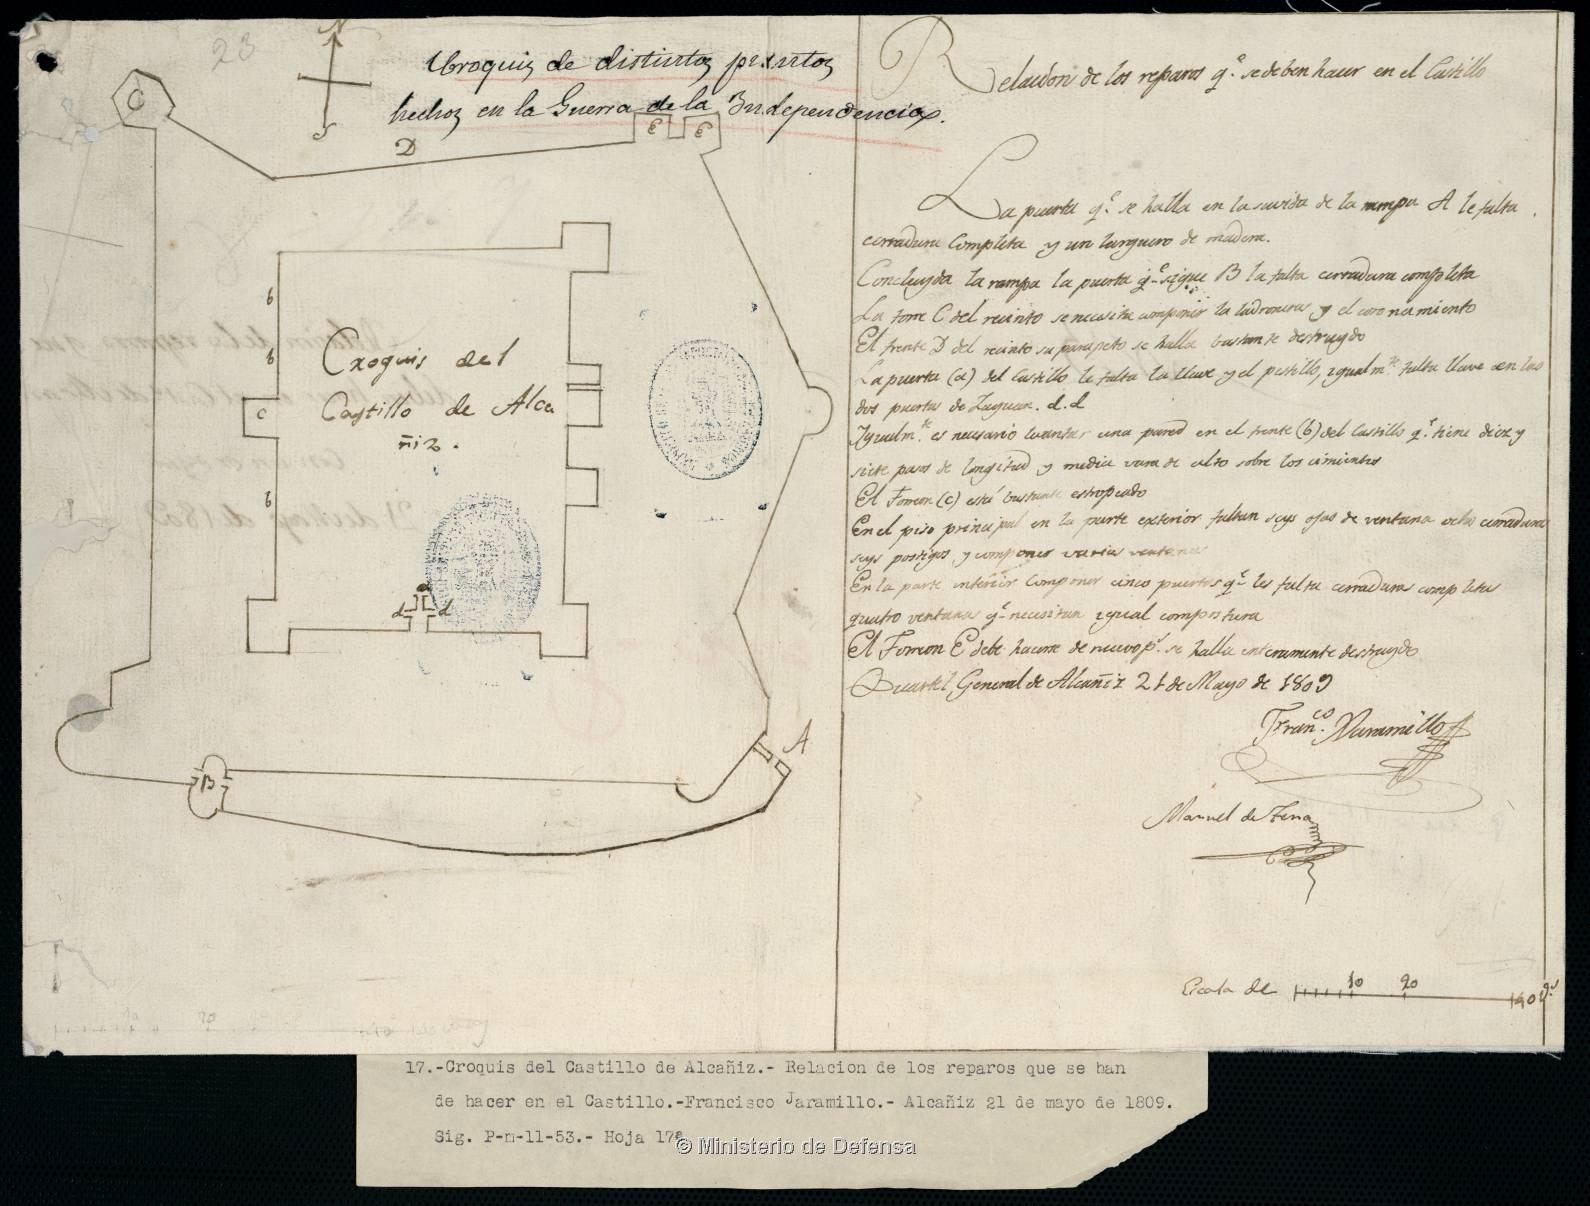 23
N
S
Croquis de distintos puntos
hechos en la Guerra de la Independencia.
C
D
E E
b
b
c
b
Croquis del
Castillo de Alca
ñiz.
a
d d
B
A
Relacion de los reparos q.e se deben hacer en el Castillo
La puerta q.e se halla en la suvida de la rampa A le falta
cerradura Completa y un larguero de madera.
Concluyda la rampa la puerta q.e sigue B la falta cerradura completa
La torre C del recinto se necesita componer la ladroneras y el coronamiento
El frente D del recinto su parapeto se halla bastante destruydo
La puerta (a) del Castillo le falta la llave y el pestillo, igualm.te falta llave en las
dos puertas de Zaguan. d. d
Igualm.te es necesario levantar una pared en el frente (b) del Castillo q.e tiene diez y
siete pasos de longitud y media vara de alto sobre los cimientos
El Torreon (c) está bastante estropeado
En el piso principal en la parte exterior faltan seys ojas de ventana ocho cerraduras
seys postigos, y componer varias ventanas
En la parte interior Componer cinco puertas q.e les falta cerraduras completas
quatro ventanas q.e necesitan igual compostura
El Torreon E debe hacerse de nuevo p.r se halla enteramente destruydo
Quartel General de Alcañiz 21 de Mayo de 1809
Fran.co Xaramillo
Manuel de Tena
Escala de 10 20 40 v.s
17.-Croquis del Castillo de Alcañiz.- Relacion de los reparos que se han
de hacer en el Castillo.-Francisco Jaramillo.- Alcañiz 21 de mayo de 1809.
Sig. P-m-11-53.- Hoja 17ª
© Ministerio de Defensa